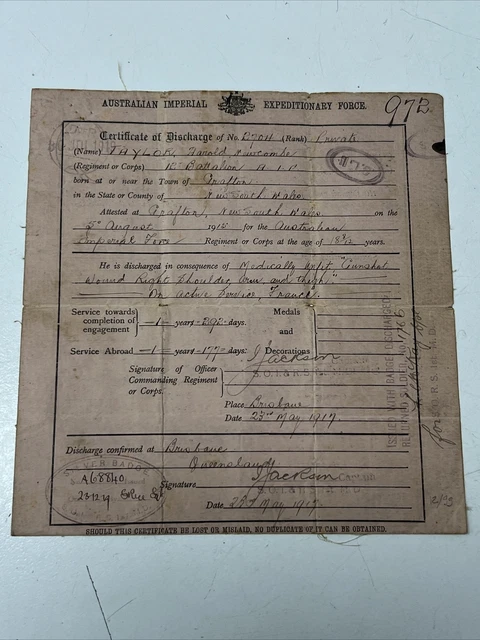 AUSTRALIAN IMPERIAL EXPEDITIONARY FORCE.
972
Certificate of Discharge of No. (Rank) Private
(Name) TAYLOR, Harold
(Regiment or Corps) Battalion A.I.F.
born at or near the Town of Grafton
in the State or County of New South Wales
Attested at Grafton, New South Wales on the
5th August 191 for the Australian
Imperial Force Regiment or Corps at the age of 18 years.
He is discharged in consequence of Medically Unfit, "Gunshot
Wound Right Shoulder, Arm and thigh."
On Active Service, France.
Service towards completion of engagement —1— years —292— days.
Medals and Decorations
Service Abroad —1— years —177— days.
Signature of Officer Commanding Regiment or Corps. Jackson
Place Brisbane
Date 23rd May 1917
Discharge confirmed at Brisbane
Queensland
Signature Jackson
Date 23rd May 1917
SILVER BADGE
A68840
SHOULD THIS CERTIFICATE BE LOST OR MISLAID, NO DUPLICATE OF IT CAN BE OBTAINED.
ISSUED WITH BADGE DISCHARGED